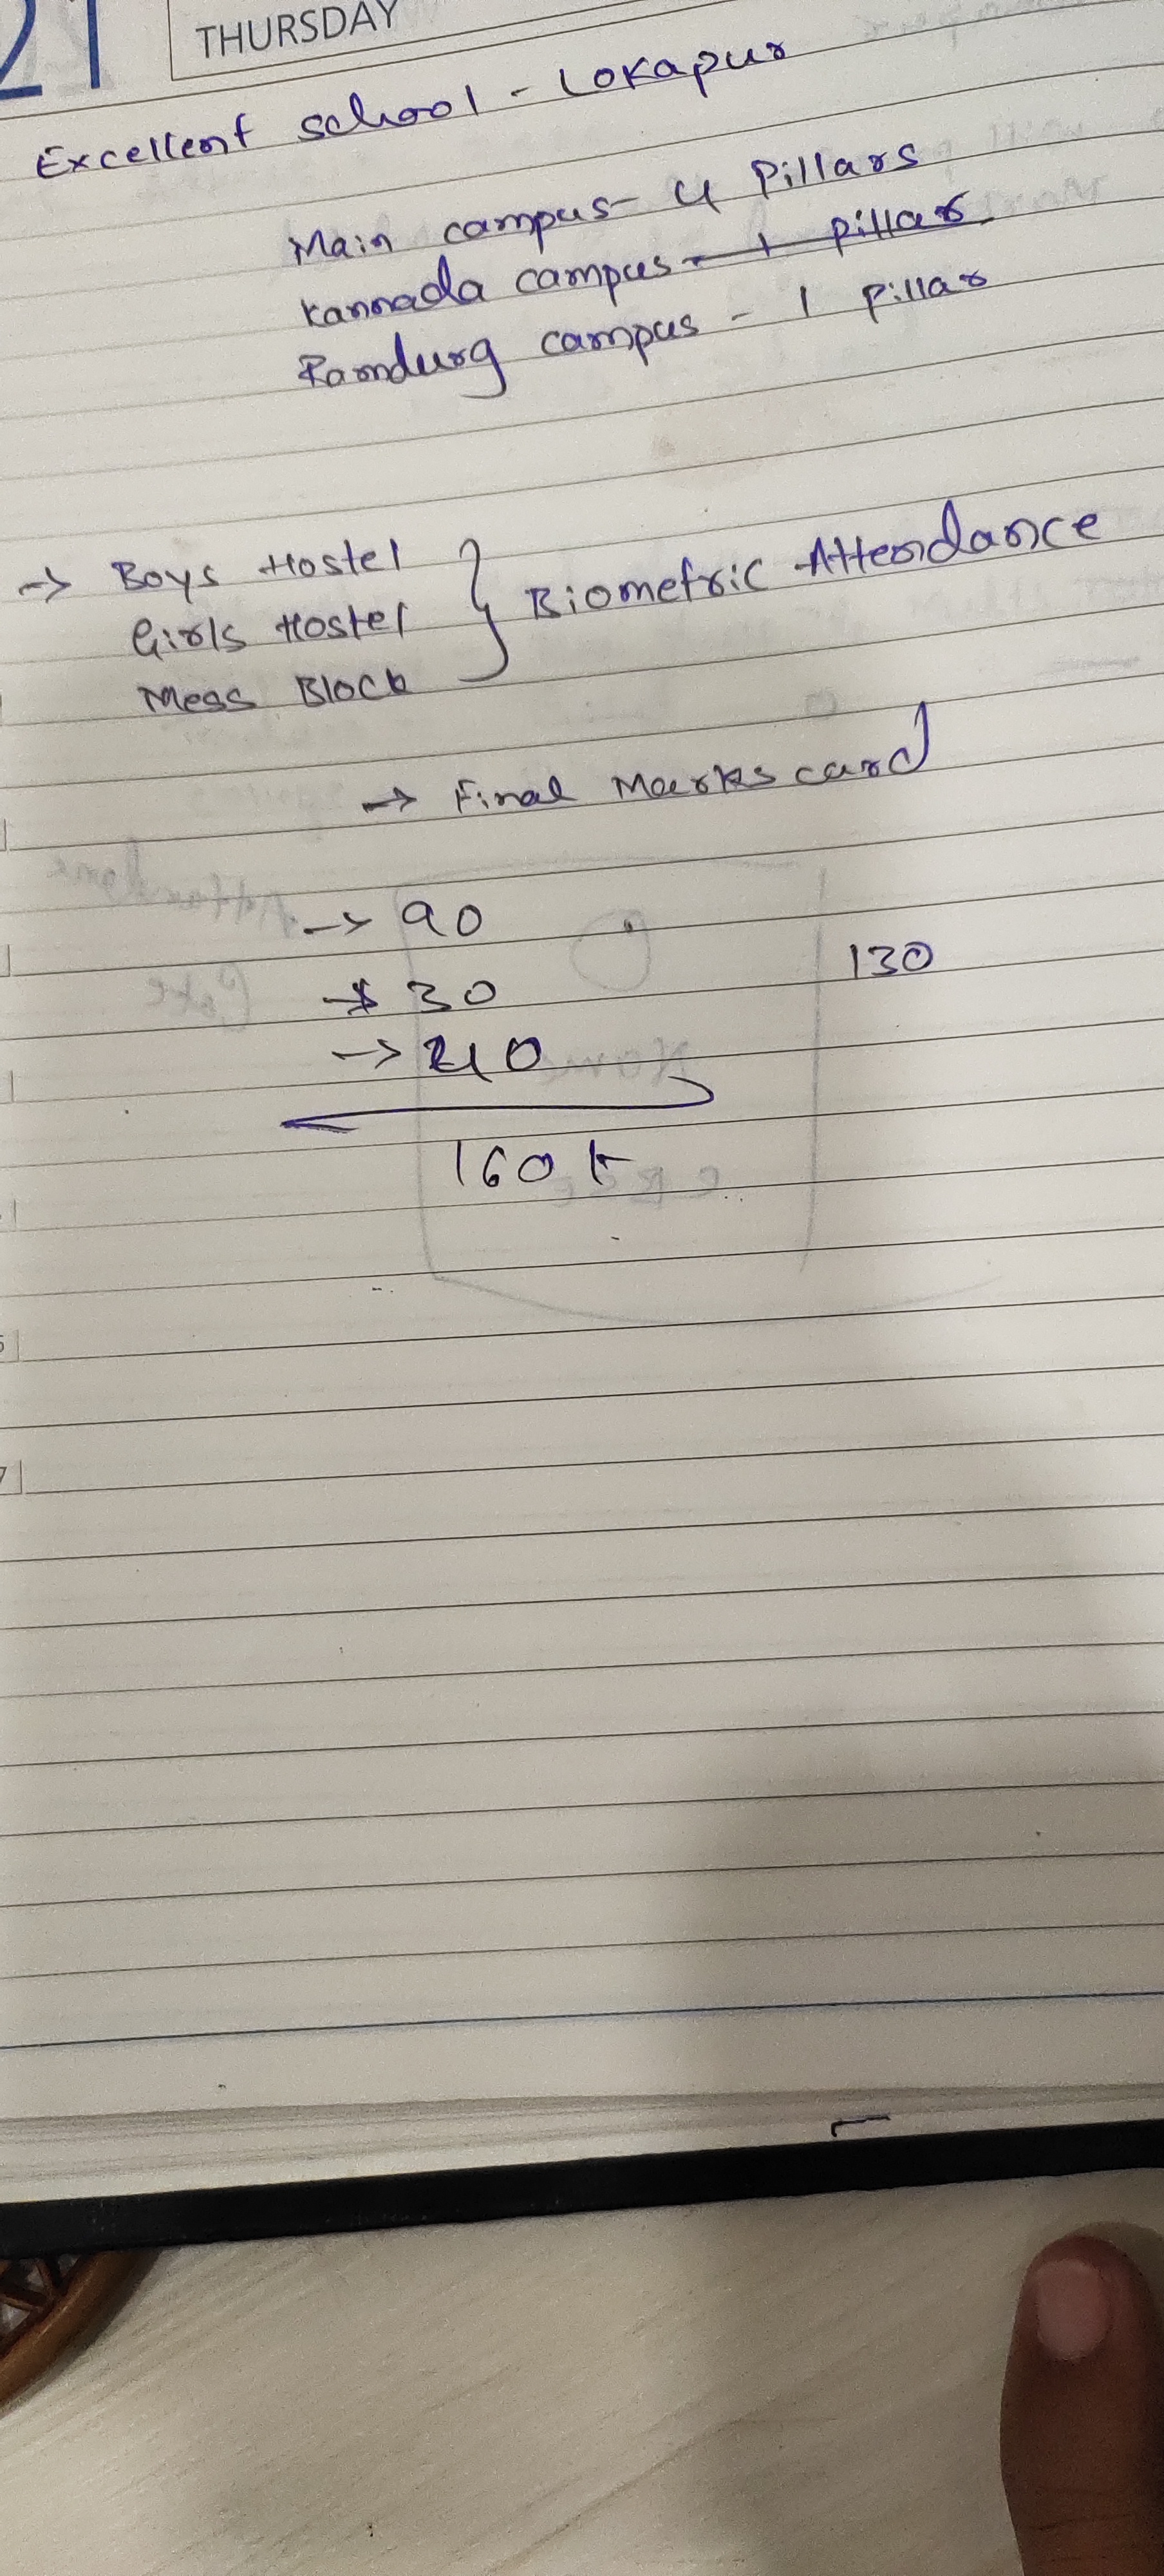 21 THURSDAY
Excellent school - Lokapur
Main campus - 4 Pillars
Kannada campus - 1 pillar
Ramdurg campus - 1 pillar
→ Boys Hostel
Girls Hostel
Mess Block
} Biometric Attendance
→ Final Marks card
→ 90
130
→ 30
→ 40
160 k